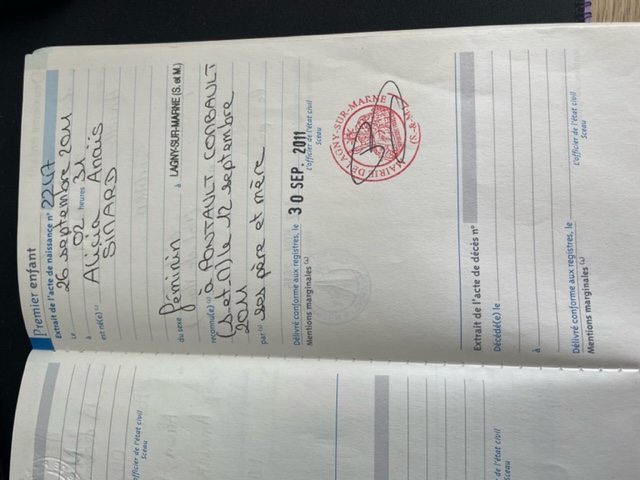 Premier enfant
Extrait de l'acte de naissance n° 2247
Le 26 septembre 2011
à 02 heures 31
est né(e) Alicia Anaïs
SINARD
du sexe féminin à LAGNY-SUR-MARNE (S. et M.)
reconnu(e) à PONTAULT COMBAULT
(S.et.M) le 12 septembre
2011
par ses père et mère
Délivré conforme aux registres, le 30 SEP. 2011
Mentions marginales L'officier de l'état civil
Sceau
MAIRIE DE LAGNY-SUR-MARNE (S.-&-M.)
Extrait de l'acte de décès n°
Décédé(e) le
à
Délivré conforme aux registres, le
Mentions marginales L'officier de l'état civil
Sceau
officier de l'état civil
Sceau
de l'état civil
Sceau